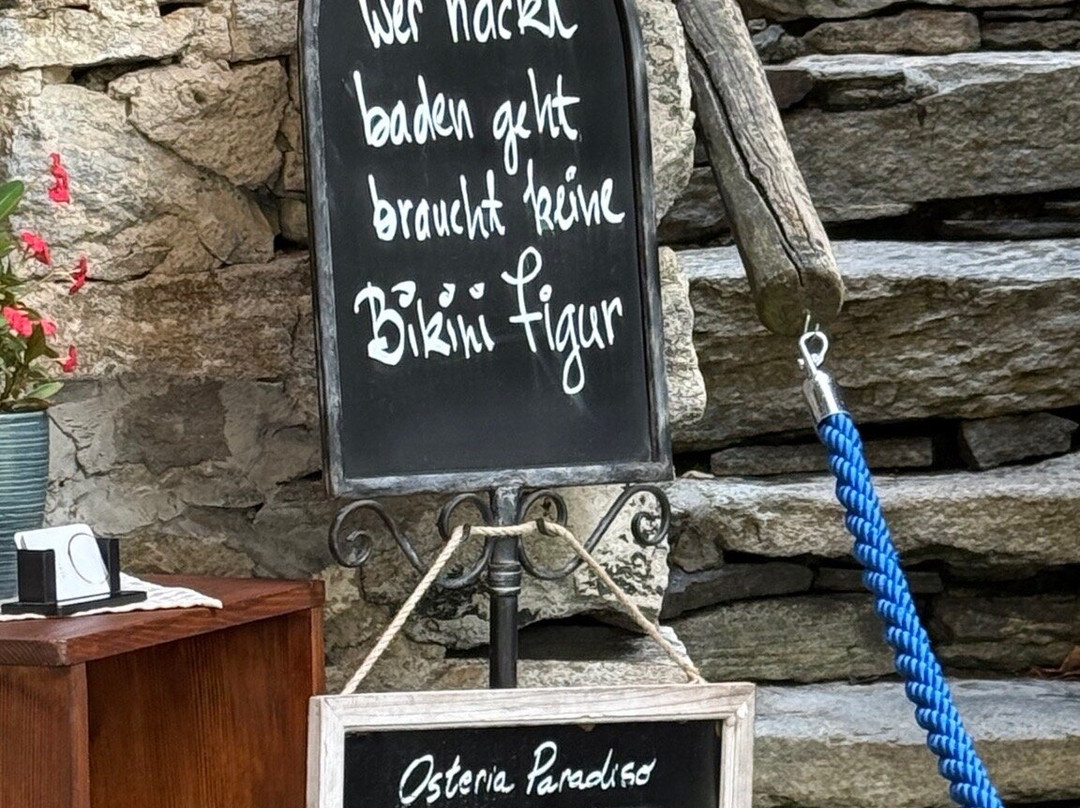 Wer nackt
baden geht
braucht keine
Bikini Figur
Osteria Paradiso